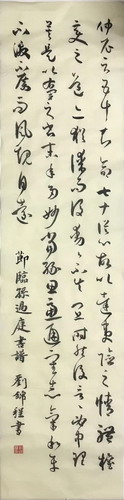 仲尼云五十知命七十從心故以達夷險之情體權
變之道亦猶謀而後動動不失宜時然後言言必中理
矣是以右軍之書末年多妙當緣思慮通審志氣和平
不激不厲而風規自遠
節臨孫過庭書譜 劉錦程書